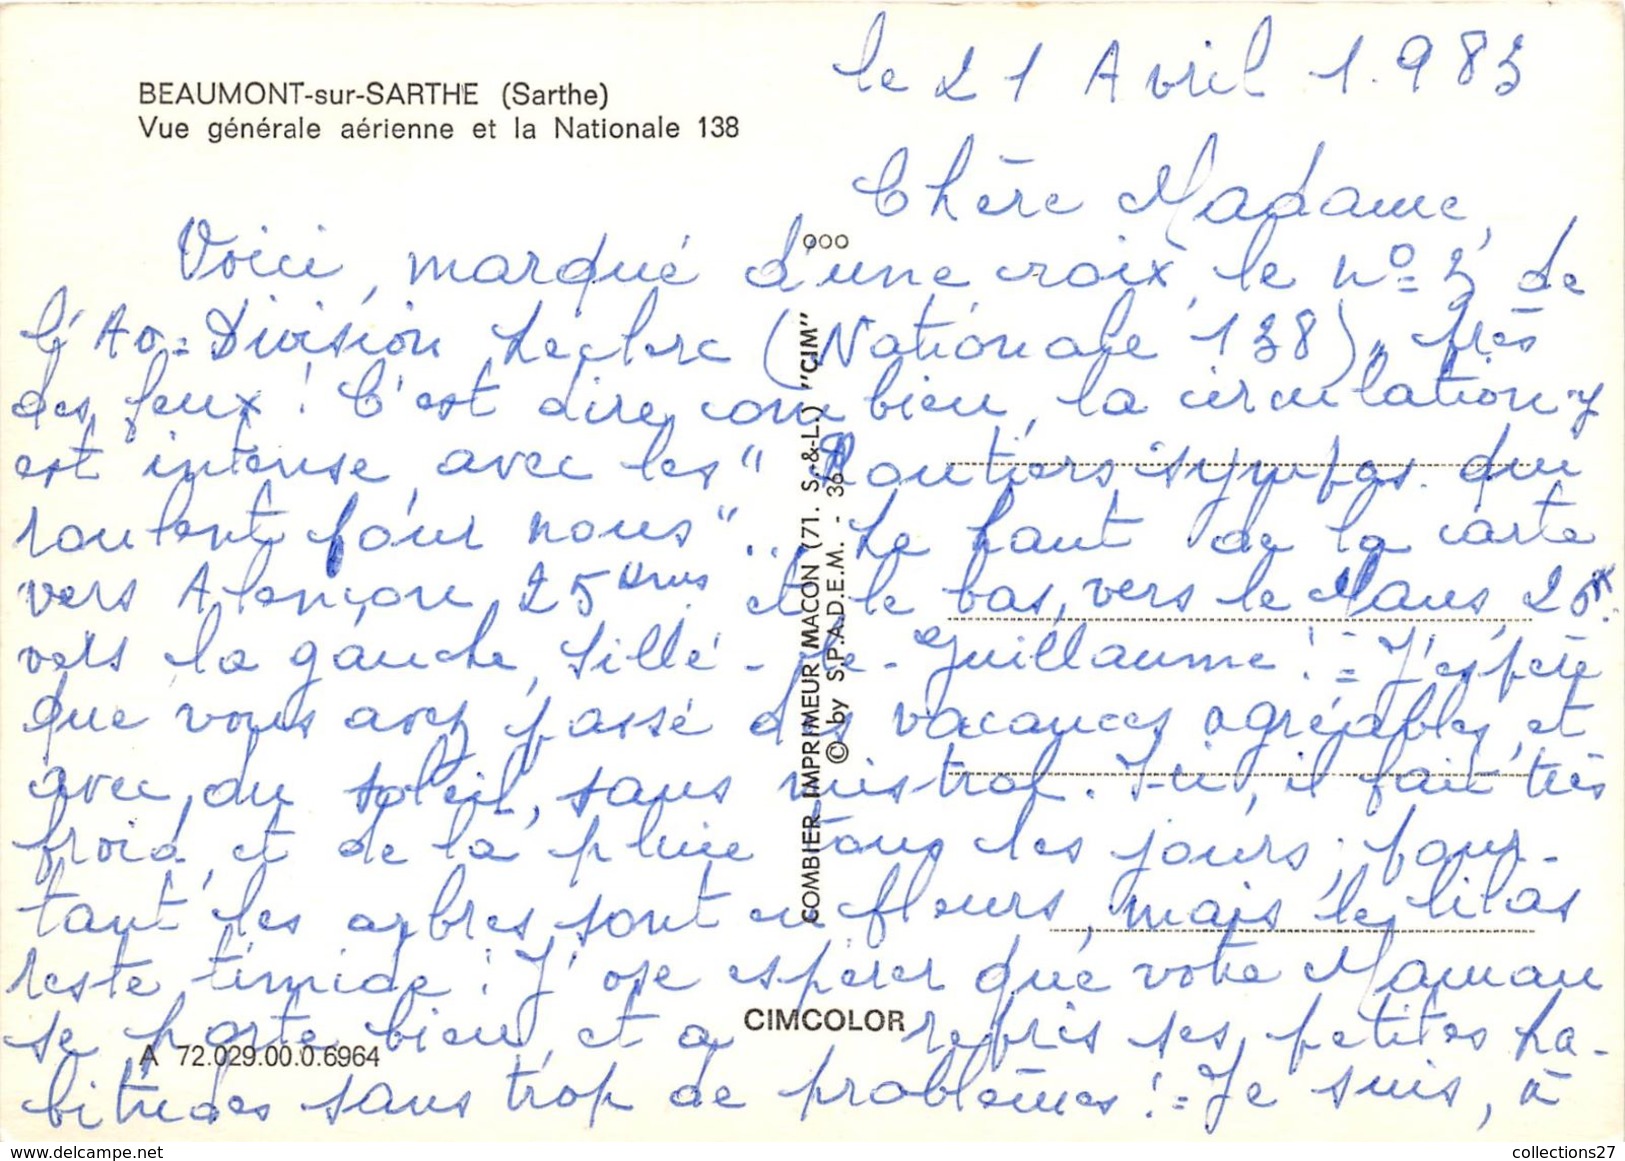 BEAUMONT-sur-SARTHE (Sarthe)
Vue générale aérienne et la Nationale 138
le 21 Avril 1.983
Chère Madame,
Voici, marqué d'une croix, le nº 3 de
l'Av= Division Leclerc (Nationale 138), près
des feux! C'est dire combien, la circulation y
est intense, avec les "Routiers sympas qui
roulent pour nous"... Le haut de la carte
vers Alençon, 25 kms et le bas, vers le Mans, 26 K.
vers la gauche, Sillé-le-Guillaume! = J'espère
que vous avez passé des vacances agréables, et
avec, du soleil, sans mistral. Ici, il fait très
froid, et de la pluie tous les jours; pour-
tant les arbres sont en fleurs, mais le lilas
reste timide! J'ose espérer que votre Maman
se porte bien, et a repris ses petites ha-
bitudes sans trop de problèmes! = Je suis, à
ooo
COMBIER IMPRIMEUR MACON (71. S.-&-L.) "CIM"
© by S.P.A.D.E.M. - 36
CIMCOLOR
A 72.029.00.0.6964
collections27